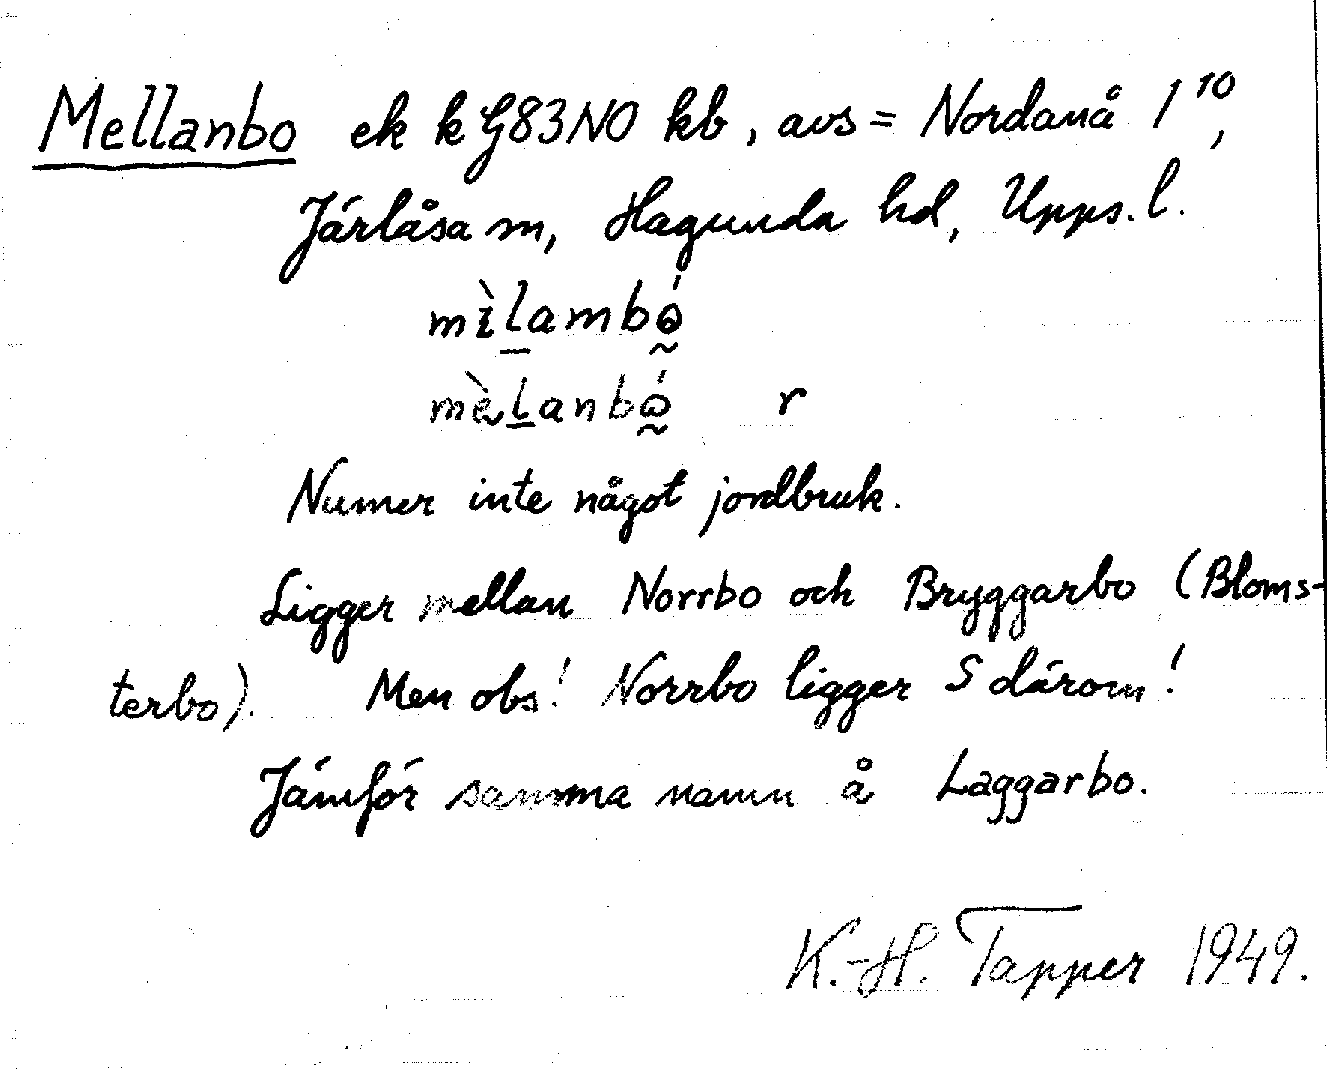 Mellanbo ek k G83NO kb, avs = Nordanå 1¹⁰,
Järlåsa sn, Hagunda hd, Upps. l.
mèlambó
mèlanbó r
Numer inte något jordbruk.
Ligger mellan Norrbo och Bryggarbo (Bloms-
terbo). Men obs! Norrbo ligger S därom!
Jämför samma namn å Laggarbo.
K.-H. Tapper 1949.